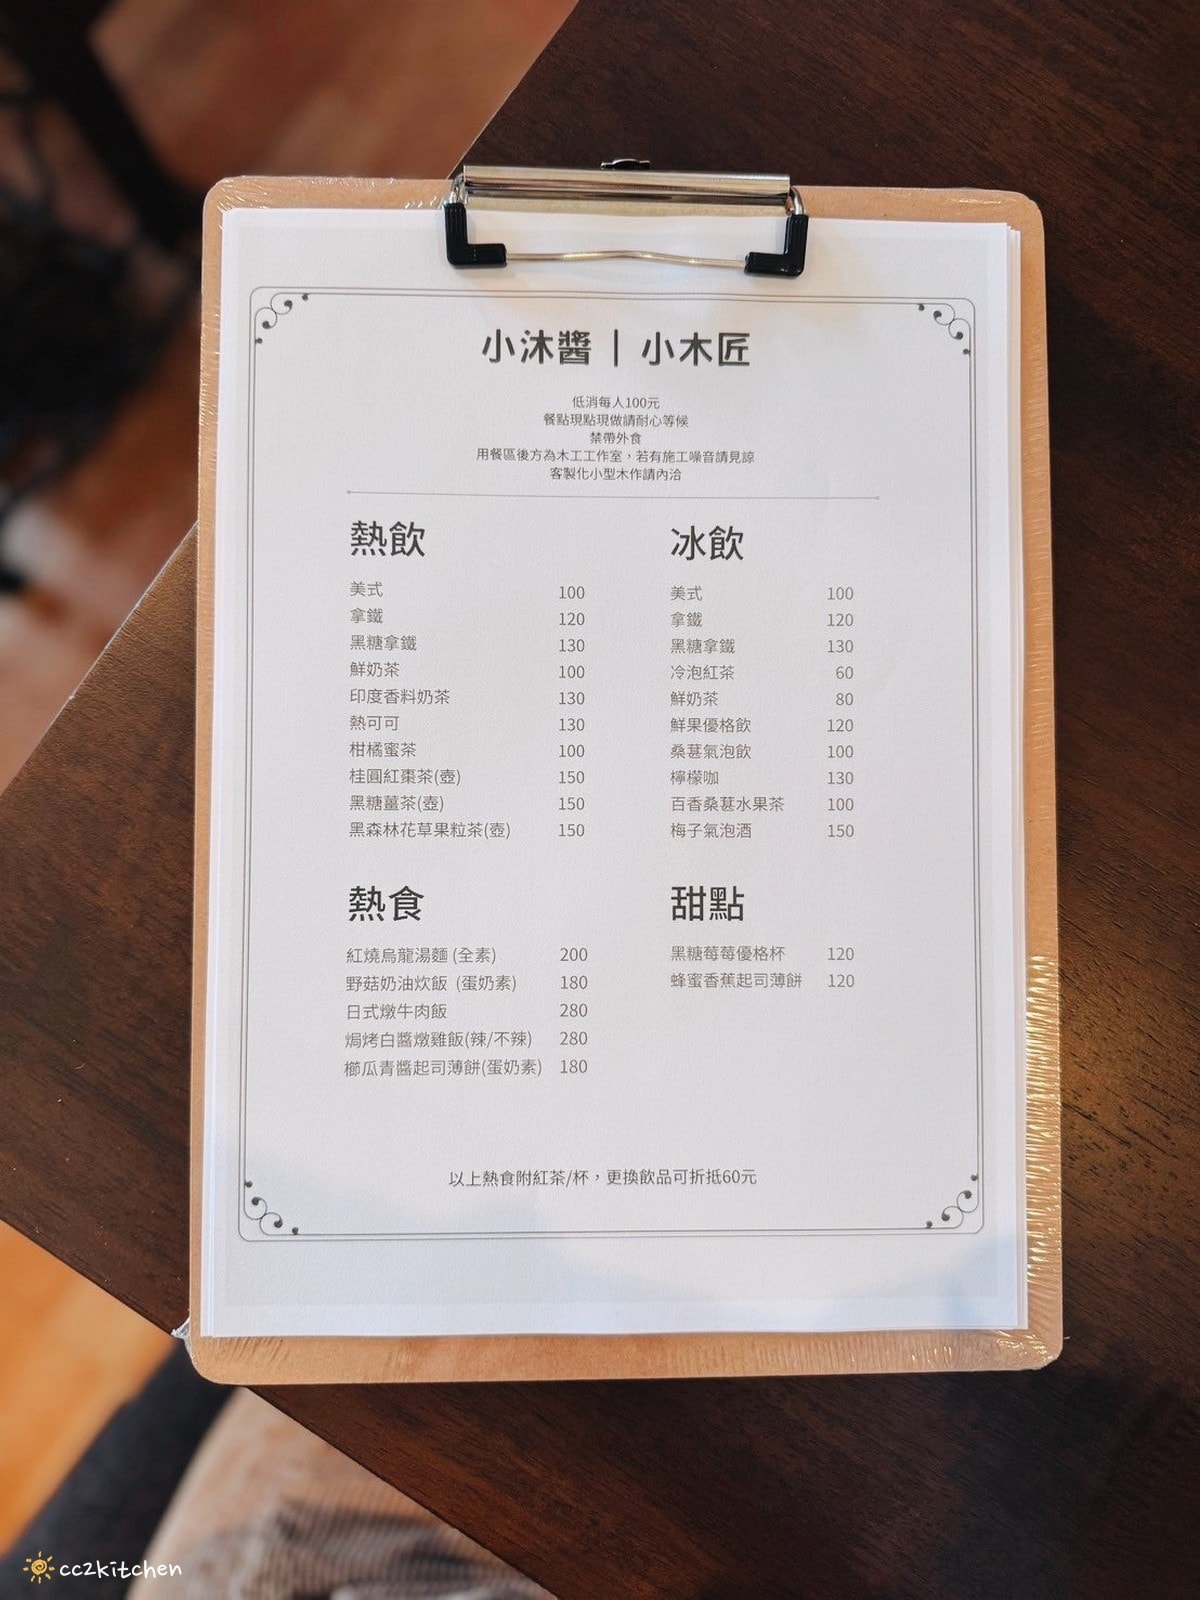 小沐醬 | 小木匠
低消每人100元
餐點現點現做請耐心等候
禁帶外食
用餐區後方為木工工作室，若有施工噪音請見諒
客製化小型木作請內洽
熱飲
美式 100
拿鐵 120
黑糖拿鐵 130
鮮奶茶 100
印度香料奶茶 130
熱可可 130
柑橘蜜茶 100
桂圓紅棗茶(壺) 150
黑糖薑茶(壺) 150
黑森林花草果粒茶(壺) 150
冰飲
美式 100
拿鐵 120
黑糖拿鐵 130
冷泡紅茶 60
鮮奶茶 80
鮮果優格飲 120
桑葚氣泡飲 100
檸檬咖 130
百香桑葚水果茶 100
梅子氣泡酒 150
熱食
紅燒烏龍湯麵 (全素) 200
野菇奶油炊飯 (蛋奶素) 180
日式燉牛肉飯 280
焗烤白醬燉雞飯(辣/不辣) 280
櫛瓜青醬起司薄餅(蛋奶素) 180
甜點
黑糖莓莓優格杯 120
蜂蜜香蕉起司薄餅 120
以上熱食附紅茶/杯，更換飲品可折抵60元
cc2kitchen